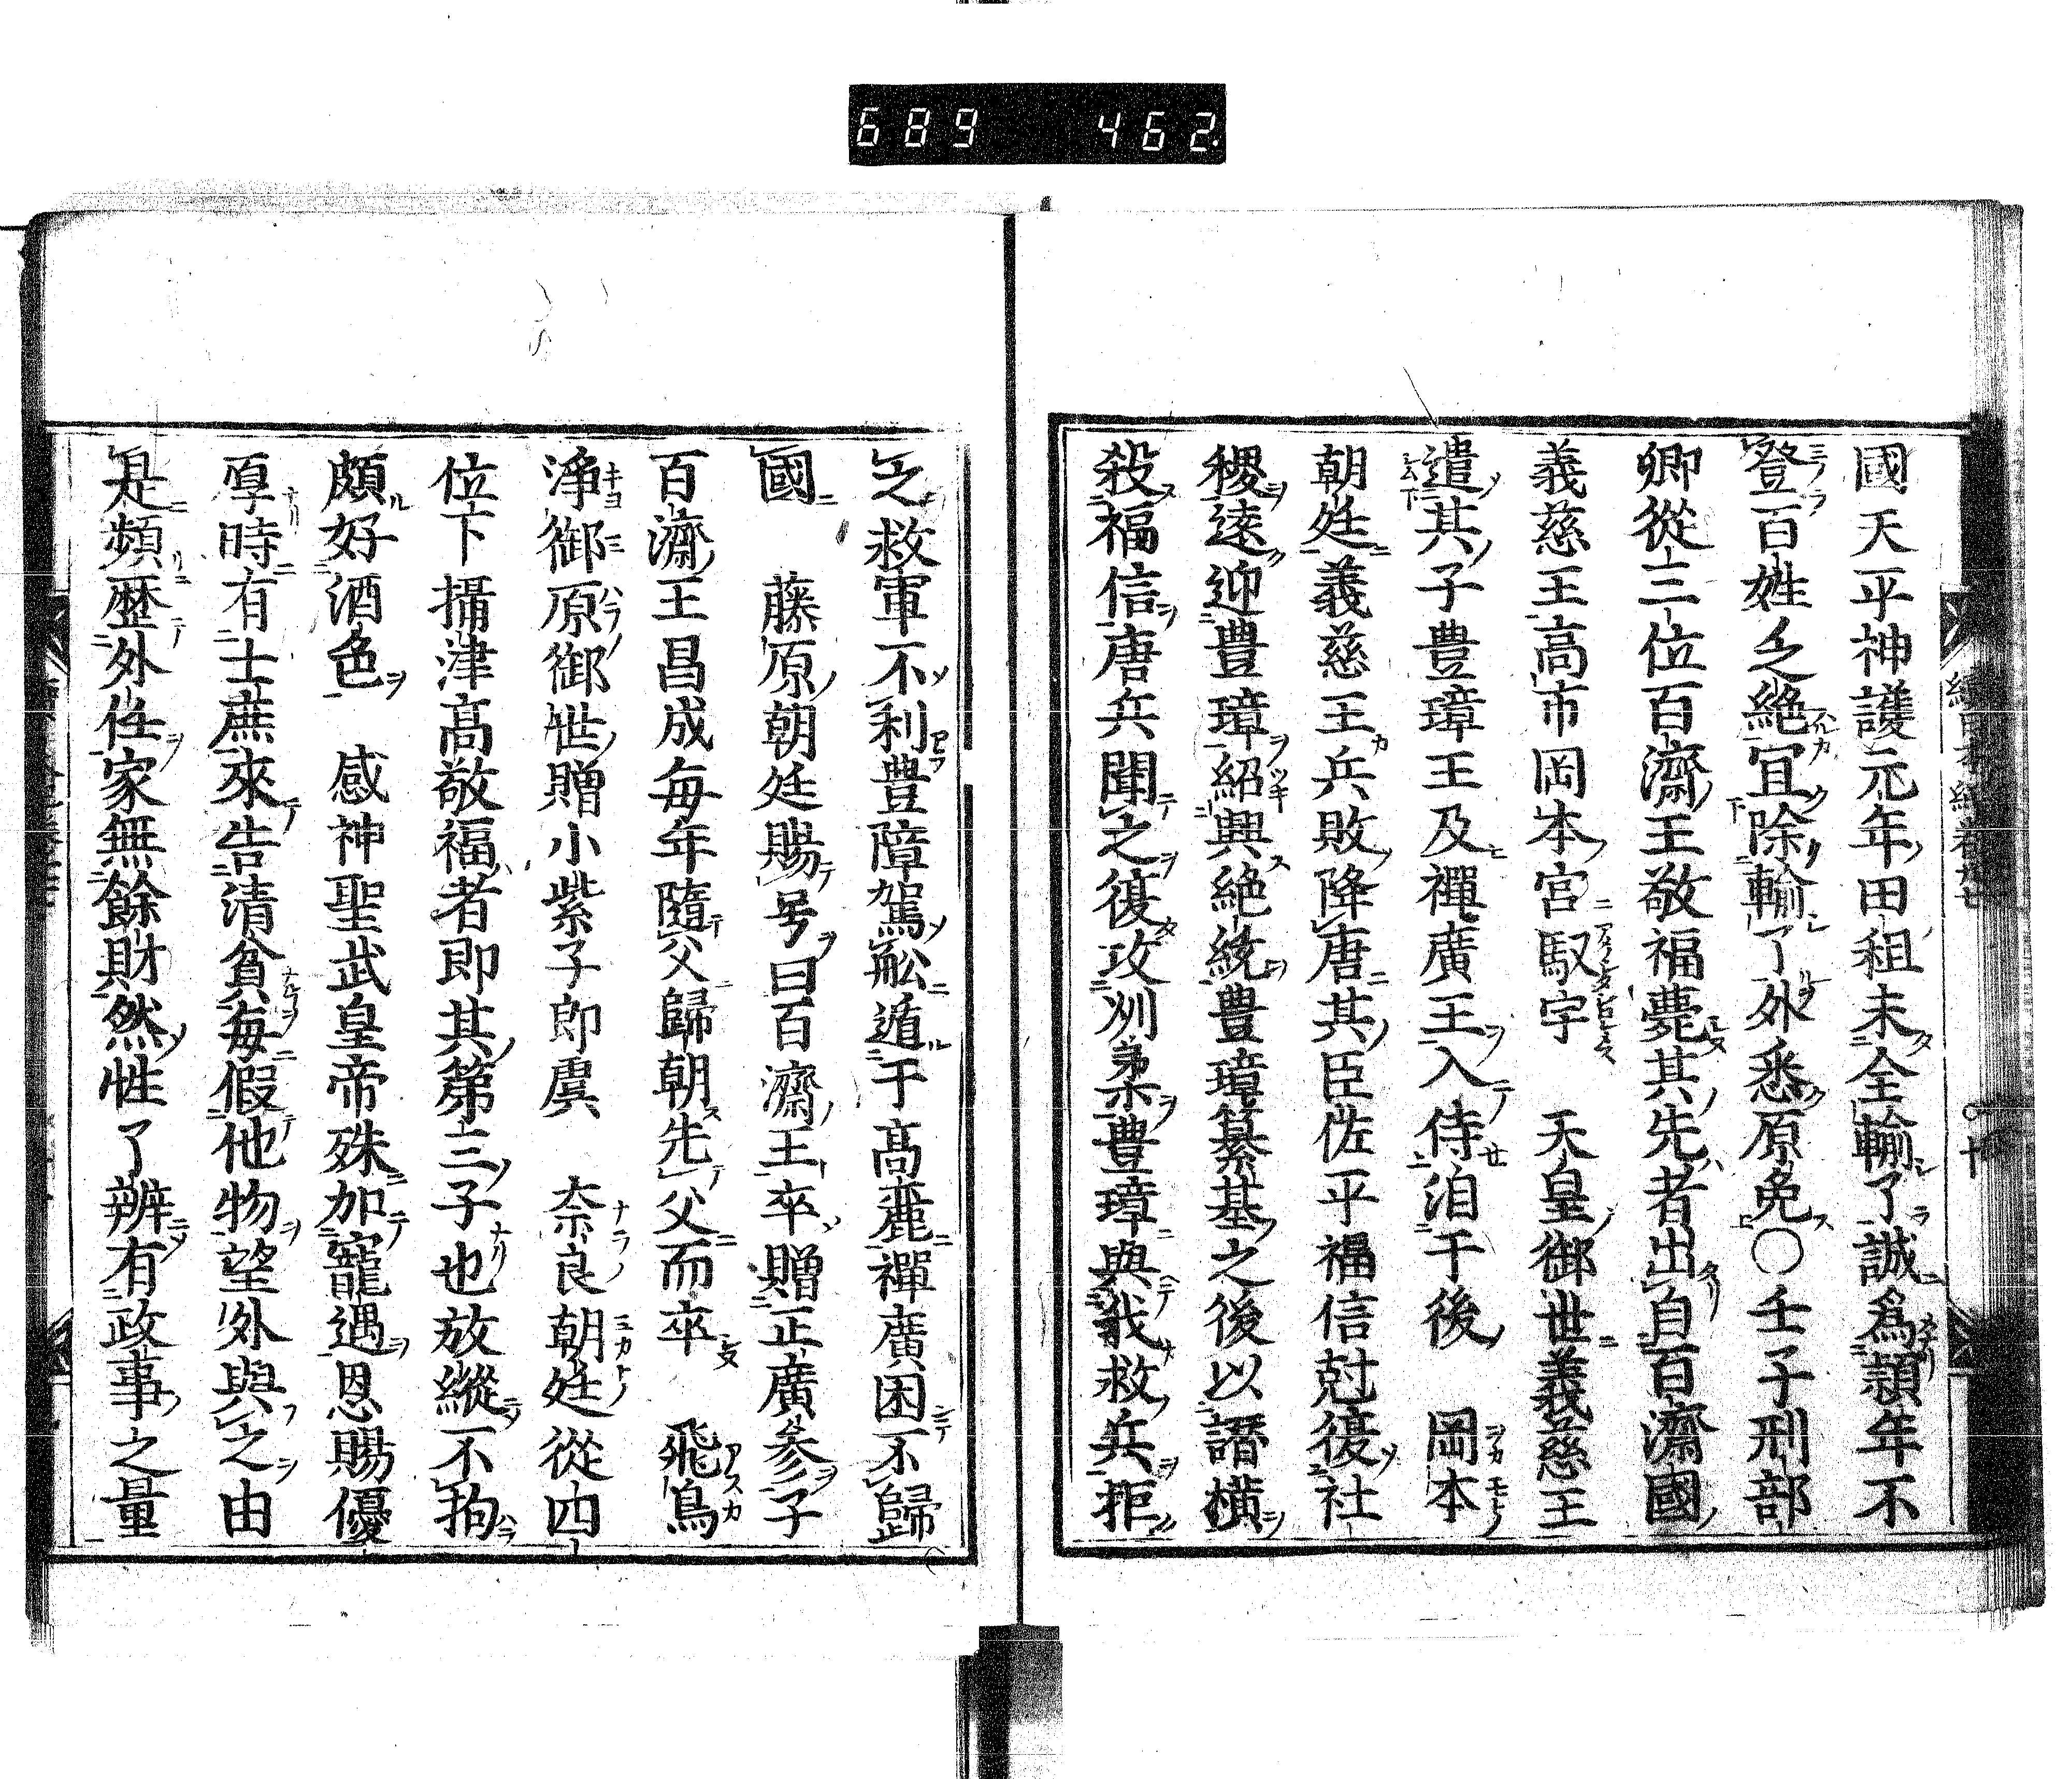 689 462
國天平神護元年田租未全輸了誠爲頴年不
登百姓之絶宜除輸了外悉原免〇壬子刑部
卿從三位百濟王敬福薨其先者出自百濟國
義慈王高市岡本宮馭宇 天皇御世義慈王
遣其子豊璋王及禪廣王入侍洎于後 岡本
朝廷義慈王兵敗降唐其臣佐平福信尅復社
稷遠迎豊璋紹興絶統豊璋纂基之後以譖横
殺福信唐兵聞之復攻州柔豊璋與我救兵拒
之救軍不利豊璋駕舩遁于高麗禪廣因不歸
國 藤原朝廷賜号曰百濟王卒贈正廣参子
百濟王昌成毎年隨父歸朝先父而卒 飛鳥
淨御原御世贈小紫子郎虞 奈良朝廷從四
位下攝津高敬福者即其第三子也放縱不拘
頗好酒色 感神聖武皇帝殊加寵遇恩賜優
厚時有士庶來告清貧毎假他物望外與之由
是頻歴外任家無餘財然性了辨有政事之量